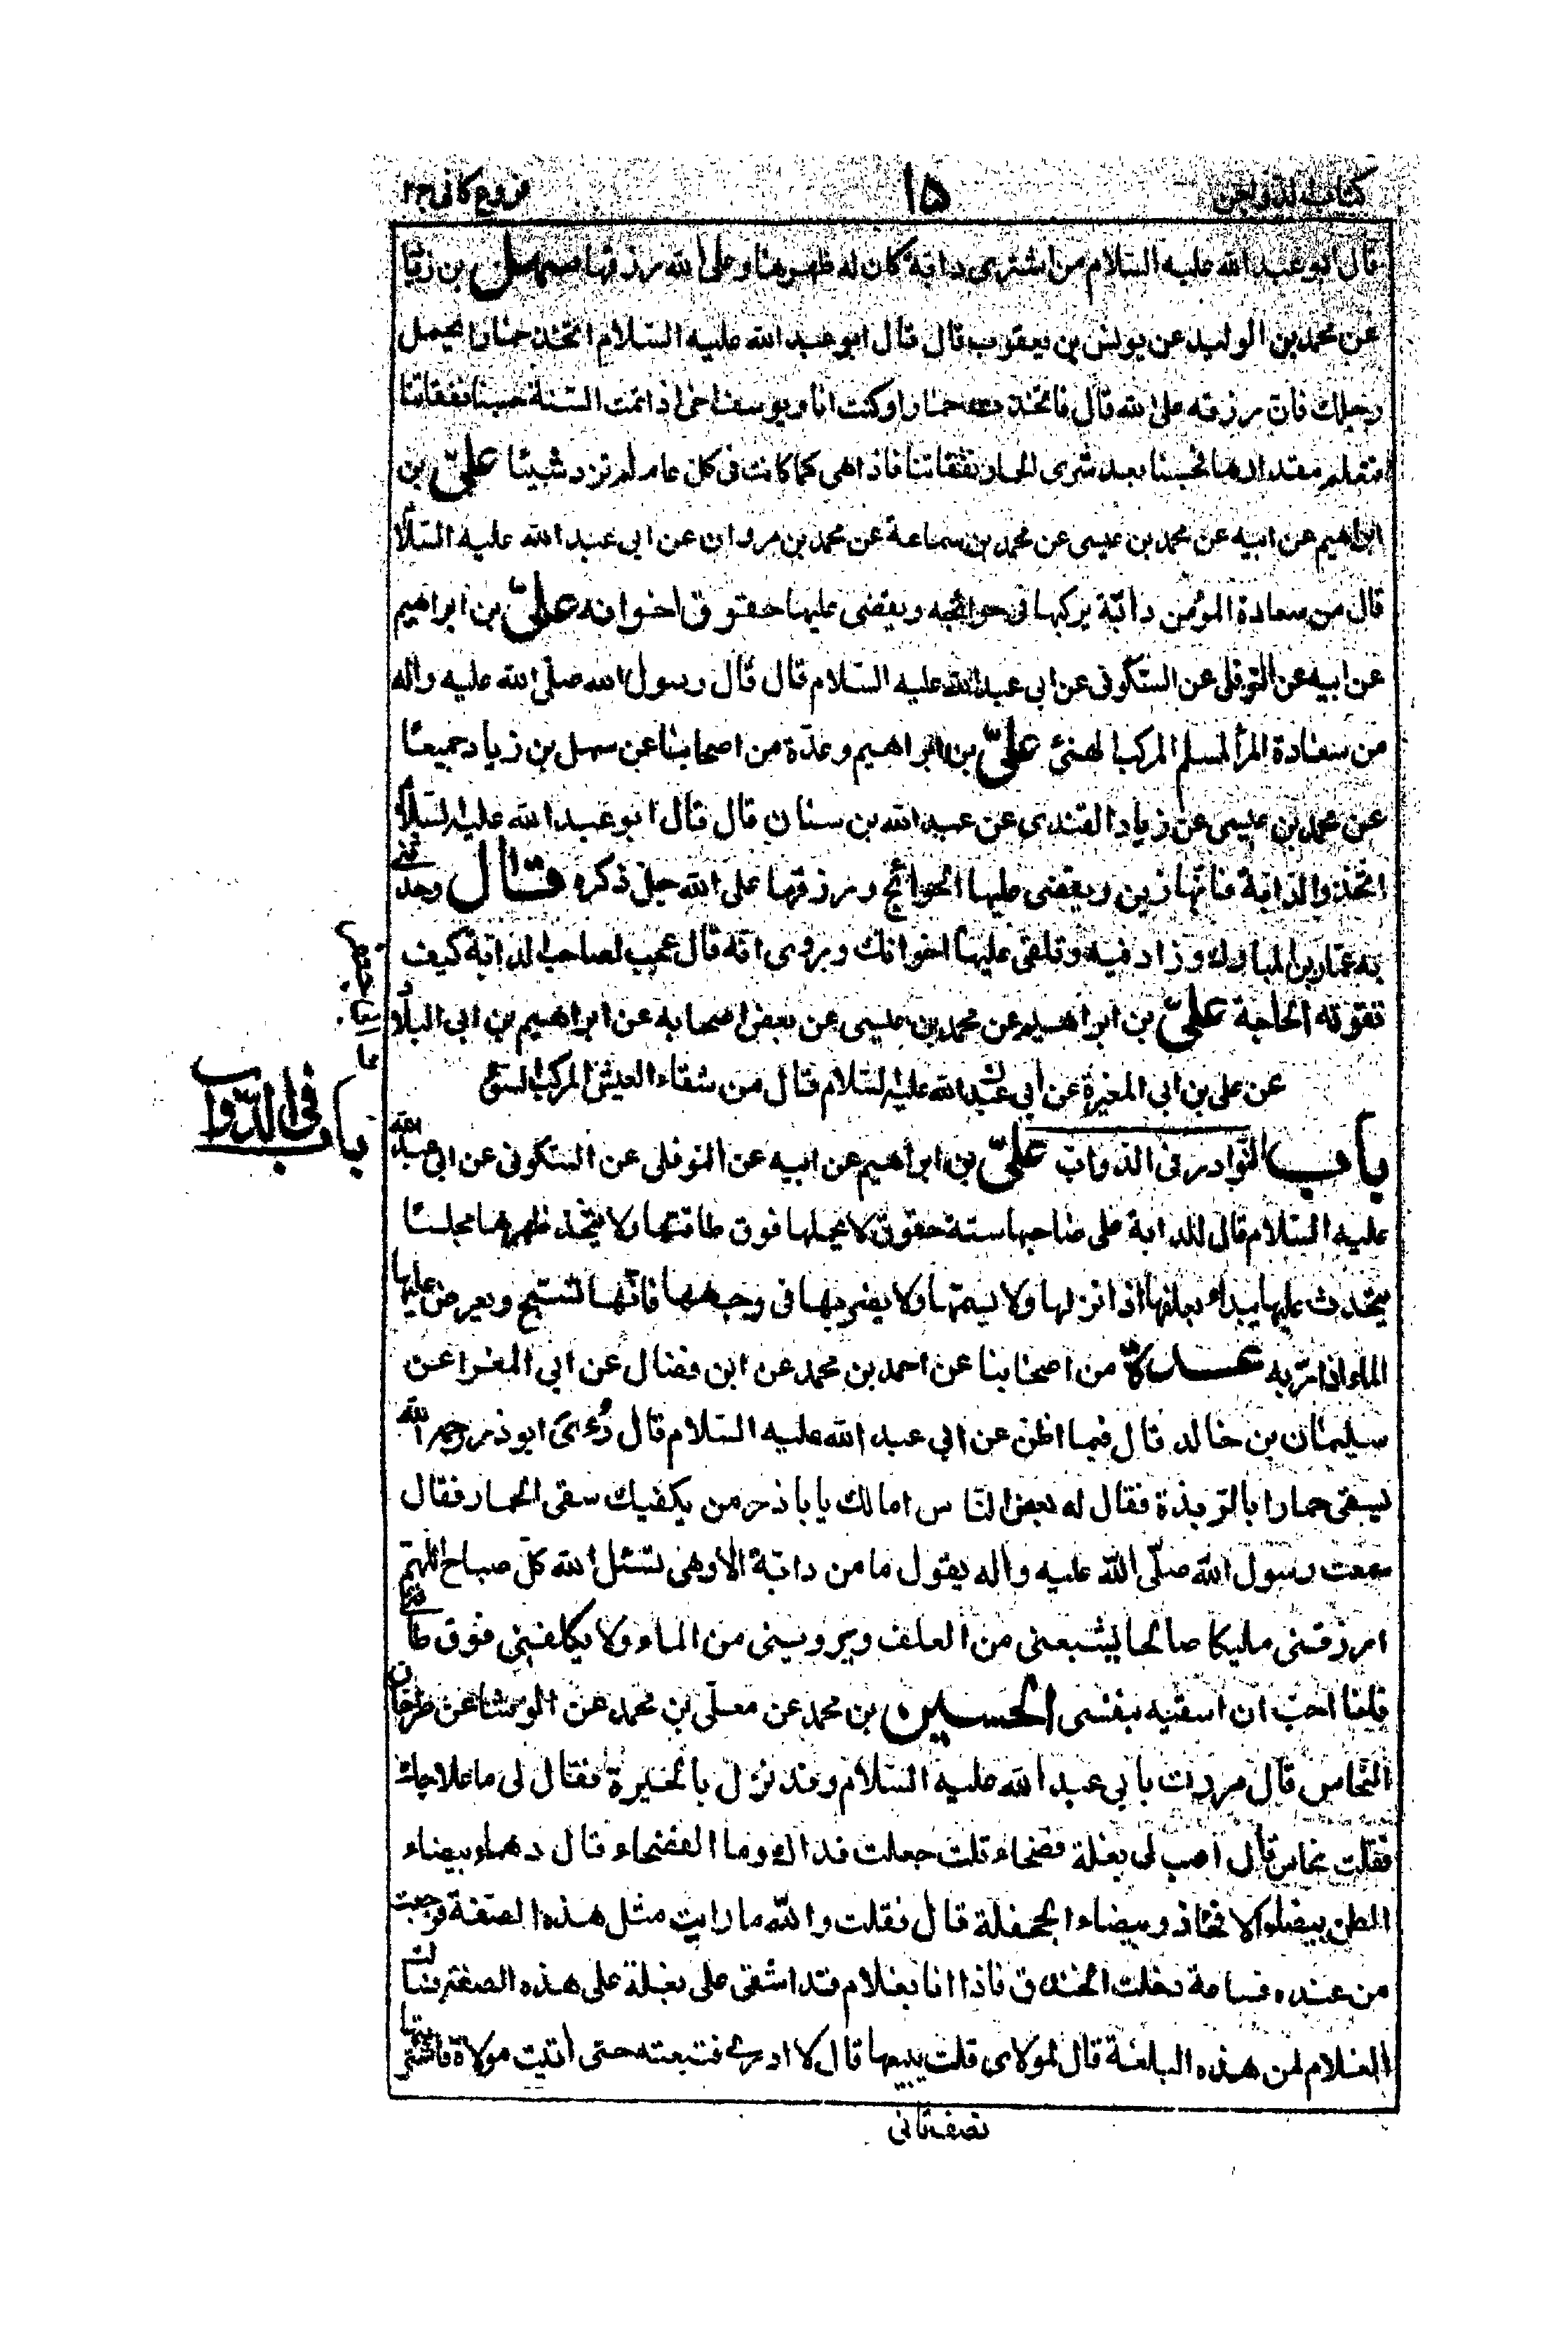 كتاب الدواجن
١٥
فروع كافى ج٢
قال ابو عبد الله عليه السّلام من اشترى دابة كان له ظهرها وعلى الله رزقها سهل بن زياد
عن محمد بن الوليد عن يونس بن يعقوب قال قال ابو عبد الله عليه السّلام اتّخذ حمارا يحمل
رحلك فان رزقه على الله قال فاتخذت حمارا وكنت انا ويوسف اخى اذا تمت السّنة حسبنا نفقاتنا
فنعلم مقدارها فحسبنا بعد شرى الحمار نفقاتنا فاذا هى كما كانت فى كل عام لم تزد شيئا علىّ بن
ابراهيم عن ابيه عن محمد بن عيسى عن محمد بن سماعة عن محمد بن مروان عن ابى عبد الله عليه السّلام
قال من سعادة المؤمن دابّة يركبها فى حوائجه ويقضى عليها حقوق اخوانه علىّ بن ابراهيم
عن ابيه عن النّوفلى عن السّكونى عن ابى عبد الله عليه السّلام قال قال رسول الله صلّى الله عليه واله
من سعادة المرأ المسلم المركب الهنئ علىّ بن ابراهيم وعدّة من اصحابنا عن سهل بن زياد جميعا
عن محمد بن عيسى عن زياد القندى عن عبد الله بن سنان قال قال ابو عبد الله عليه السّلام
اتّخذوا الدّابّة فانّها زين ويقضى عليها الحوائج ورزقها على الله جل ذكره قال وحدثنى
به عمّار بن المبارك وزاد فيه وتلقى عليها اخوانك ويروى انّه قال عجب لصاحب الدابة كيف
تفوته الحاجة علىّ بن ابراهيم عن محمد بن عيسى عن بعض اصحابه عن ابراهيم بن ابى البلاد
عن على بن ابى المغيرة عن ابى عبد الله عليه السّلام قال من شقاء العيش المركب السّوء
باب فى الدّواب
باب النّوادر فى الدّواب علىّ بن ابراهيم عن ابيه عن النوفلى عن السّكونى عن ابى عبد الله
عليه السّلام قال للدابة على صاحبها ستة حقوق لا يحملها فوق طاقتها ولا يتّخذ ظهرها مجلسا
يتحدث عليها ويبداء بعلفها اذا نزل لها ولا يسمّها ولا يضربها فى وجهها فانّها تسبّح ويعرض عليها
الماء اذا مرّ به عدة من اصحابنا عن احمد بن محمد عن ابن فضال عن ابى المغرا عن
سليمان بن خالد قال فيما اظن عن ابى عبد الله عليه السّلام قال رُءِىَ ابو ذر رحمه الله
يسقى حمارا بالرّبذة فقال له بعض النّاس اما لك يا باذر من يكفيك سقى الحمار فقال
سمعت رسول الله صلّى الله عليه واله يقول ما من دابّة الا وهى تسئل الله كلّ صباح اللّهمّ
ارزقنى مليكا صالحا يشبعنى من العلف ويروينى من الماء ولا يكلّفنى فوق طاقتى
فانا احبّ ان اسقيه بنفسى الحسين بن محمد عن معلّى بن محمد عن الوشّا عن طرخان
النخّاس قال مررت بابى عبد الله عليه السّلام وقد نزل بالحيرة فقال لى ما علاجك
فقلت نخاس قال اصب لى بغلة فضحاء قلت جعلت فداك وما الفضحاء قال دهماء بيضاء
البطن بيضاء الافخاذ وبيضاء الجحفلة قال فقلت والله ما رايت مثل هذه الصّفة فرجعت
من عنده فساعة دخلت الخندق فاذا انا بغلام قد اشفى على بغلة على هذه الصفة فسالت
الغلام لمن هذه البلغة قال لمولاى قلت يبيعها قال لا ادرى فتبعته حتى اتيت مولاه فاشتريتها
نصف ثانى